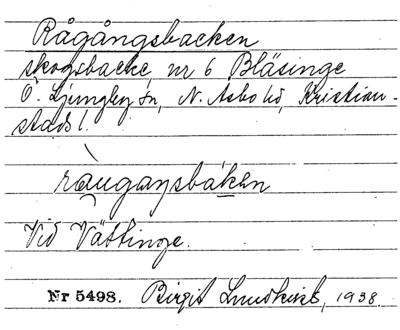 Rågångsbacken
skogsbacke, nr 6 Bläsinge
Ö. Ljungby sn, N. Åsbo hd, Kristian-
stads l.
råugaŋsbákən
Vid Vättinge.
Nr 5498. Birgit Lundkvist, 1938.